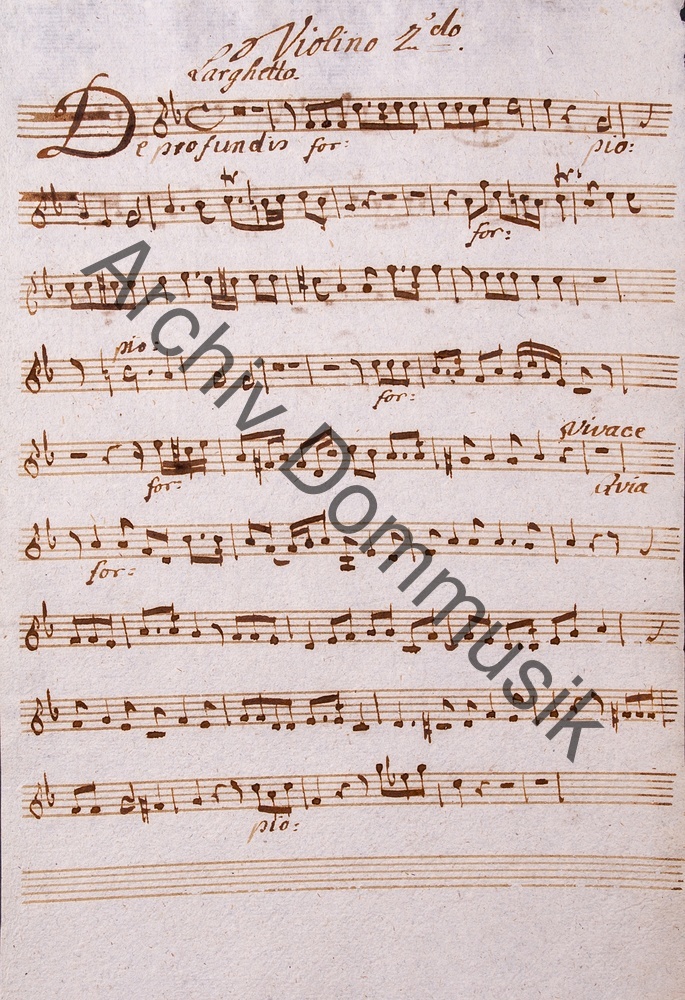 Violino 2do.
Larghetto.
De profundis for: pio:
for:
pio:
for:
Vivace
for: Quia
for:
pio:
Archiv Dommusik